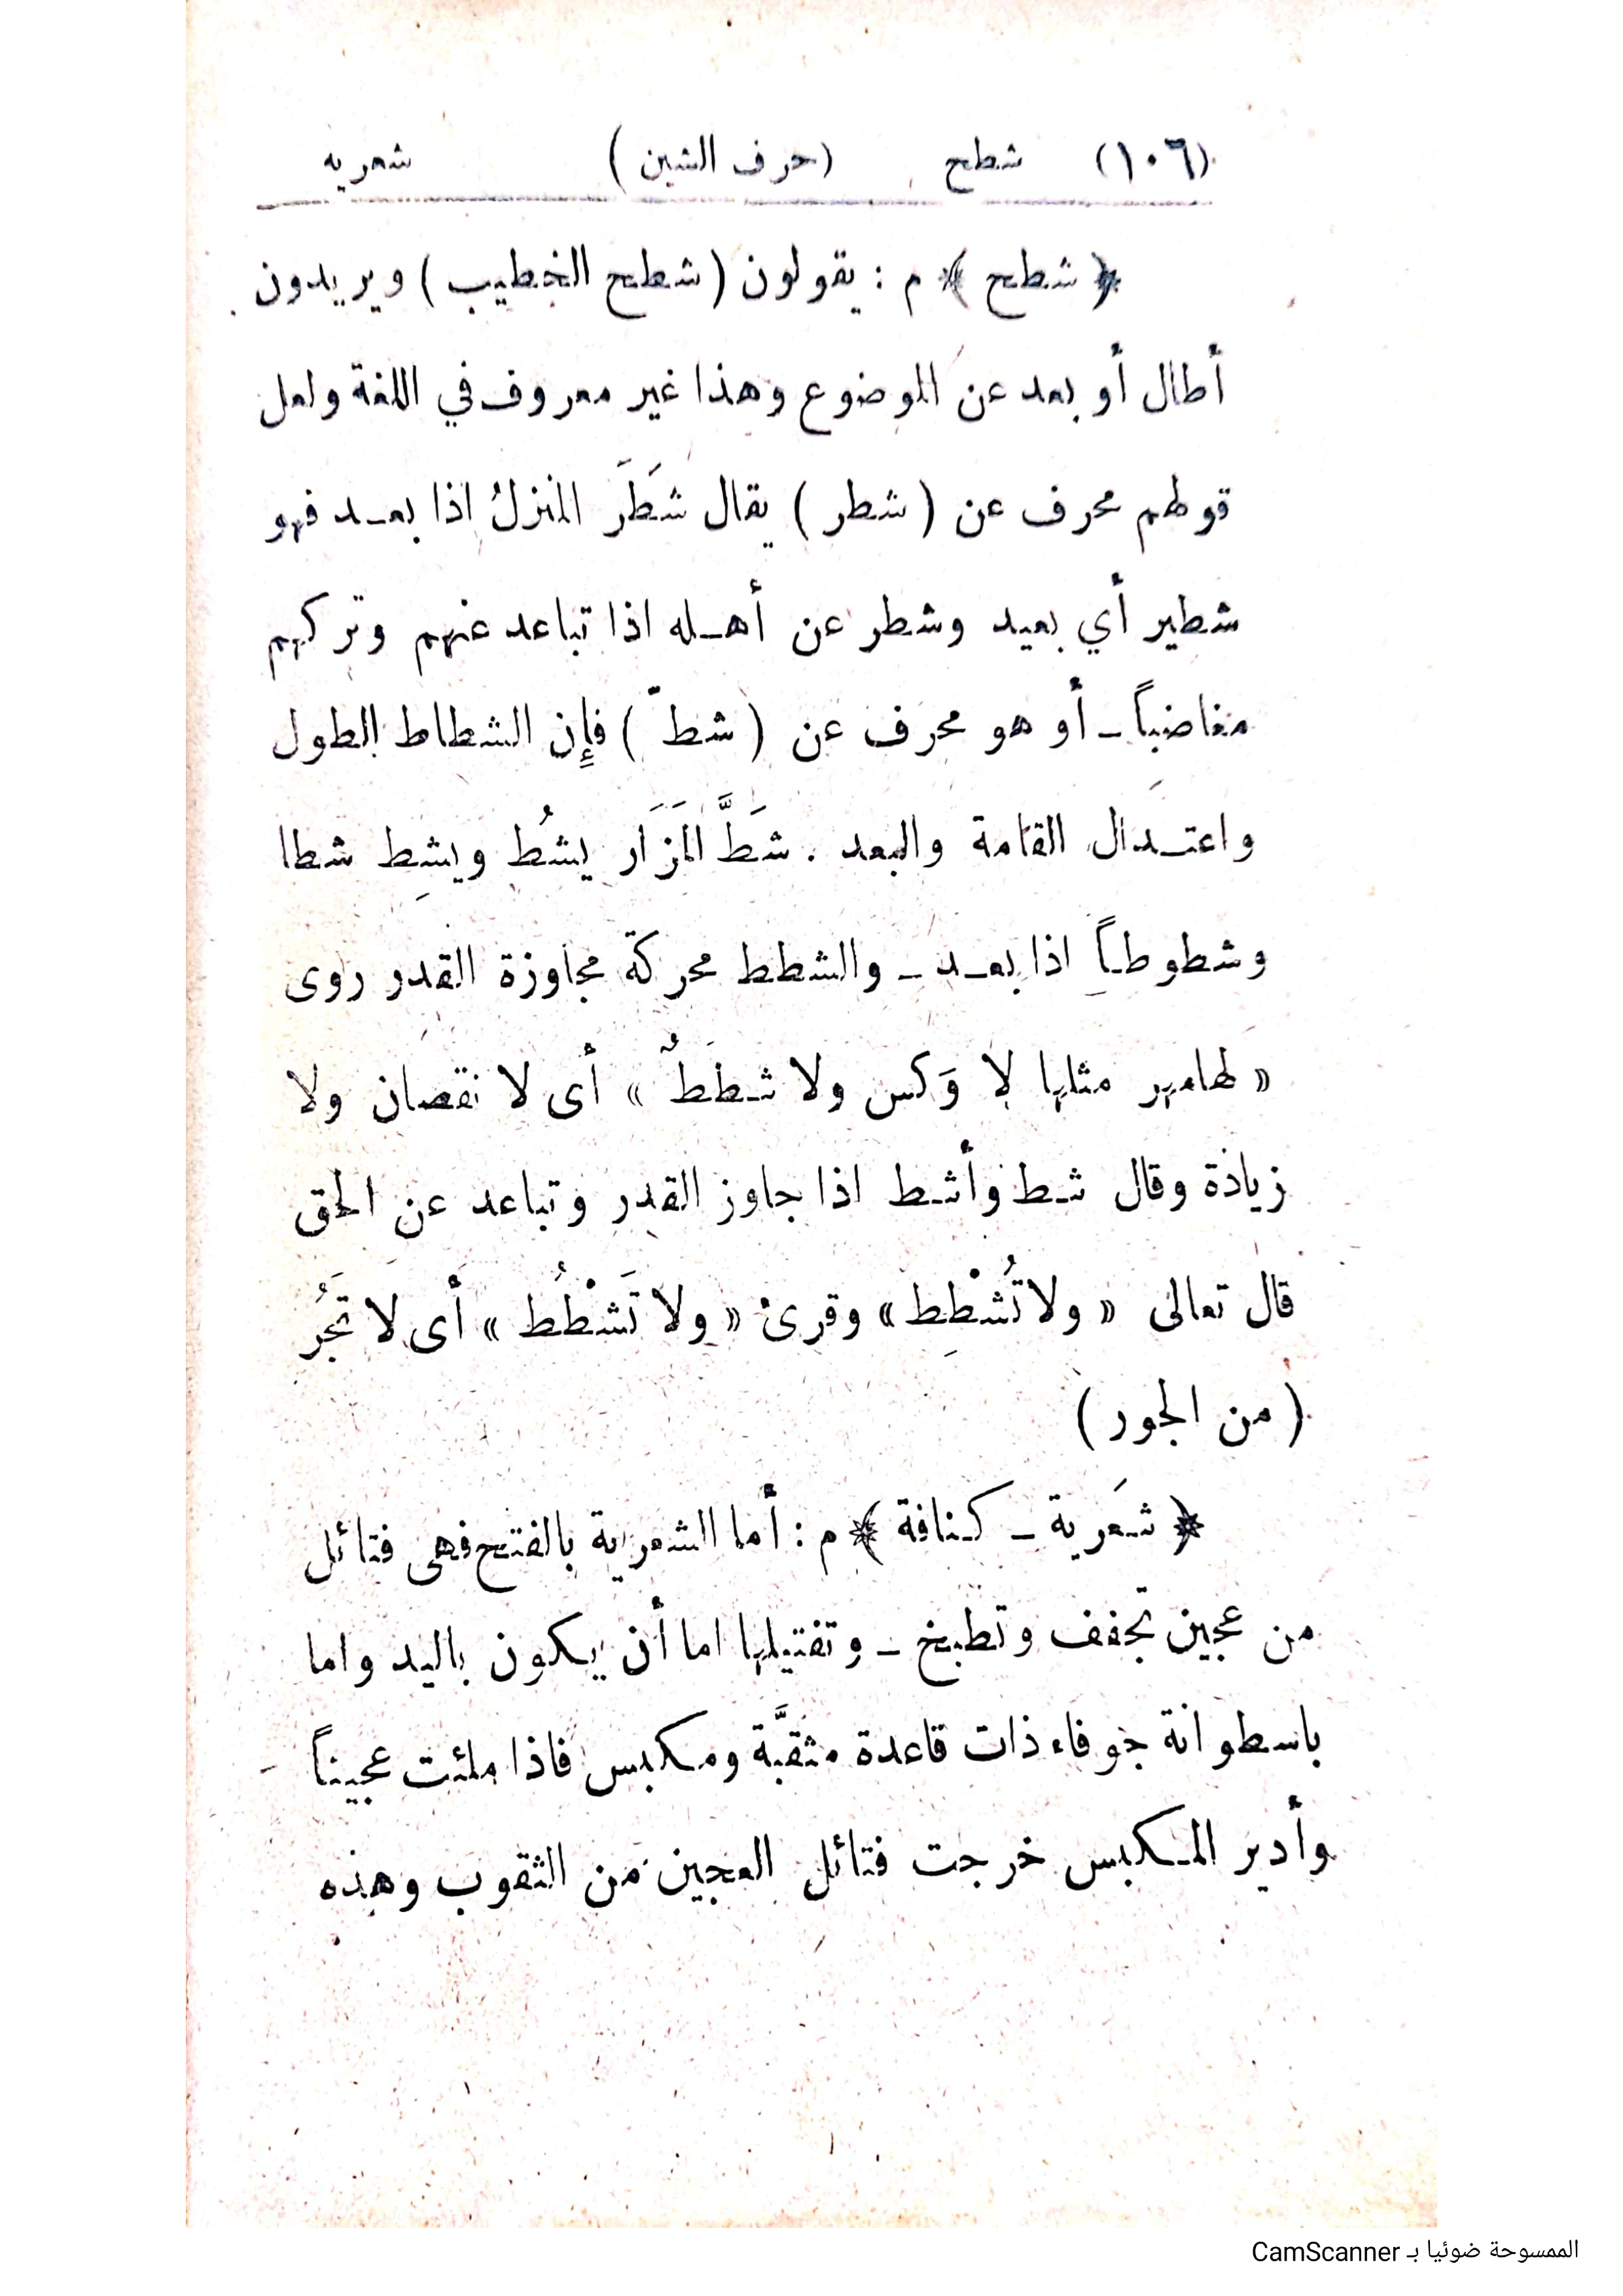 (١٠٦) شطح (حرف الشين) شعريه
﴿ شطح ﴾ م : يقولون (شطح الخطيب) ويريدون
أطال أو بعد عن الموضوع وهذا غير معروف في اللغة ولعل
قولهم محرف عن (شطر) يقال شَطَرَ المنزلُ اذا بعـد فهو
شطير أي بعيد وشطر عن أهـله اذا تباعد عنهم وتركهم
مغاضباً ـ أو هو محرف عن (شطّ) فإِن الشطاط الطول
واعتـدال القامة والبعد . شَطَّ المَزَار يشُط ويشِط شطا
وشطوطـاً اذا بعـد ـ والشطط محركة مجاوزة القدر روى
« لها مهر مثلها لا وَكس ولا شططٌ » أى لا نقصان ولا
زيادة وقال شط وأشط اذا جاوز القدر وتباعد عن الحق
قال تعالى « ولا تُشْطِط » وقرئ « ولا تَشْطُط » أى لا تَجُر
(من الجور)
﴿ شَعَرية ـ كنافة ﴾ م : أما الشعرية بالفتح فهى فتائل
من عجين تجفف وتطبخ ـ وتفتيلها اما أن يكون باليد واما
باسطوانة جوفاء ذات قاعدة مثقبَّة ومكبس فاذا ملئت عجيناً
وأدير المـكبس خرجت فتائل العجين من الثقوب وهذه
الممسوحة ضوئيا بـ CamScanner